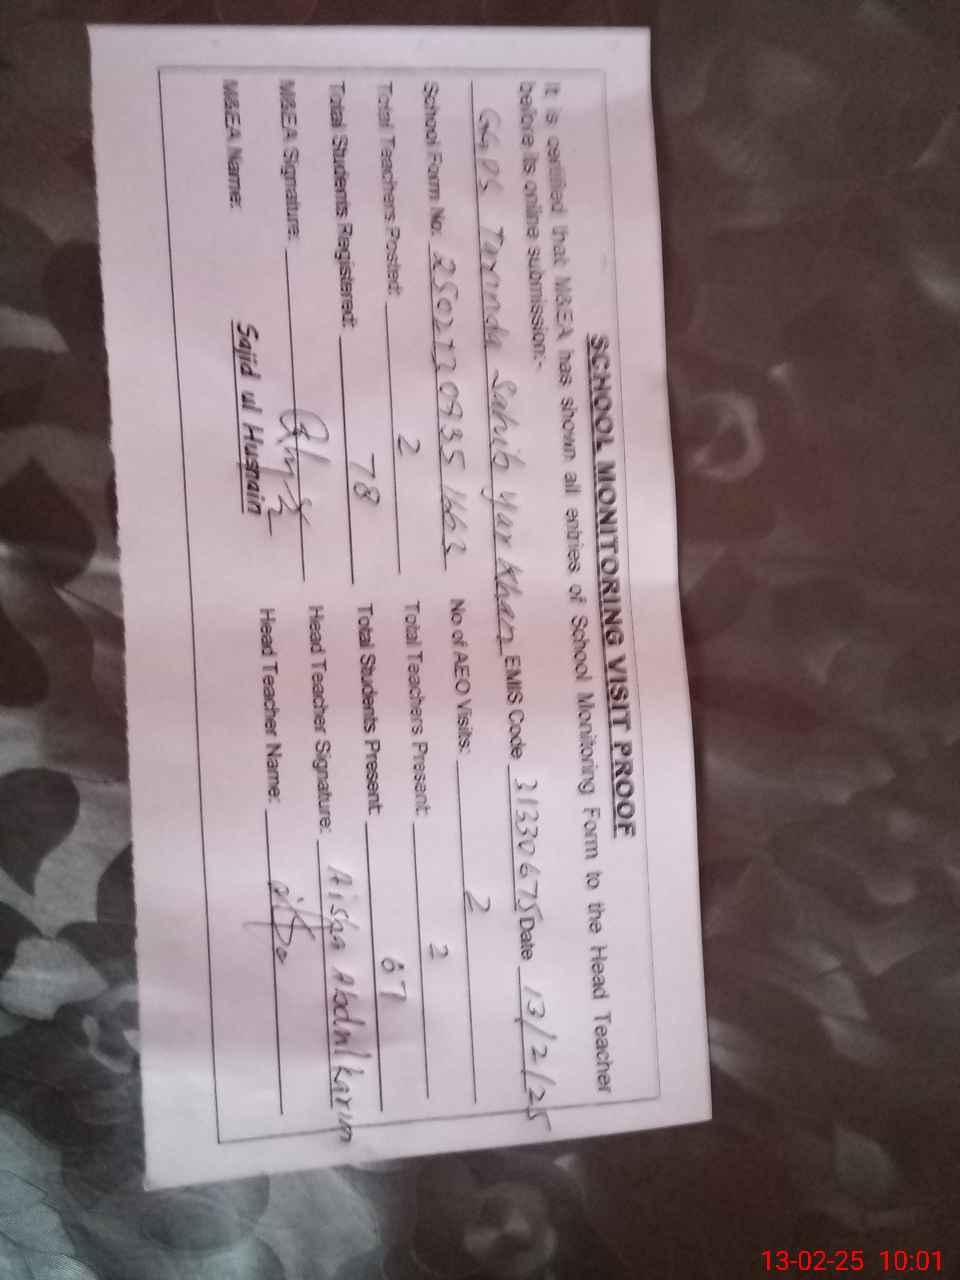 SCHOOL MONITORING VISIT PROOF
It is certified that M&EA has shown all entries of School Monitoring Form to the Head Teacher
before its online submission:-
GGPS Tarinda Sahib Yar Khan EMIS Code 31330675 Date 13/2/25
School Form No: No of AEO Visits: 2
Total Teachers Posted: 2 Total Teachers Present: 2
Total Students Registered: 78 Total Students Present: 67
M&EA Signature: Head Teacher Signature: Aisha Abdul Karim
M&EA Name: Sajid ul Husnain Head Teacher Name:
13-02-25 10:01